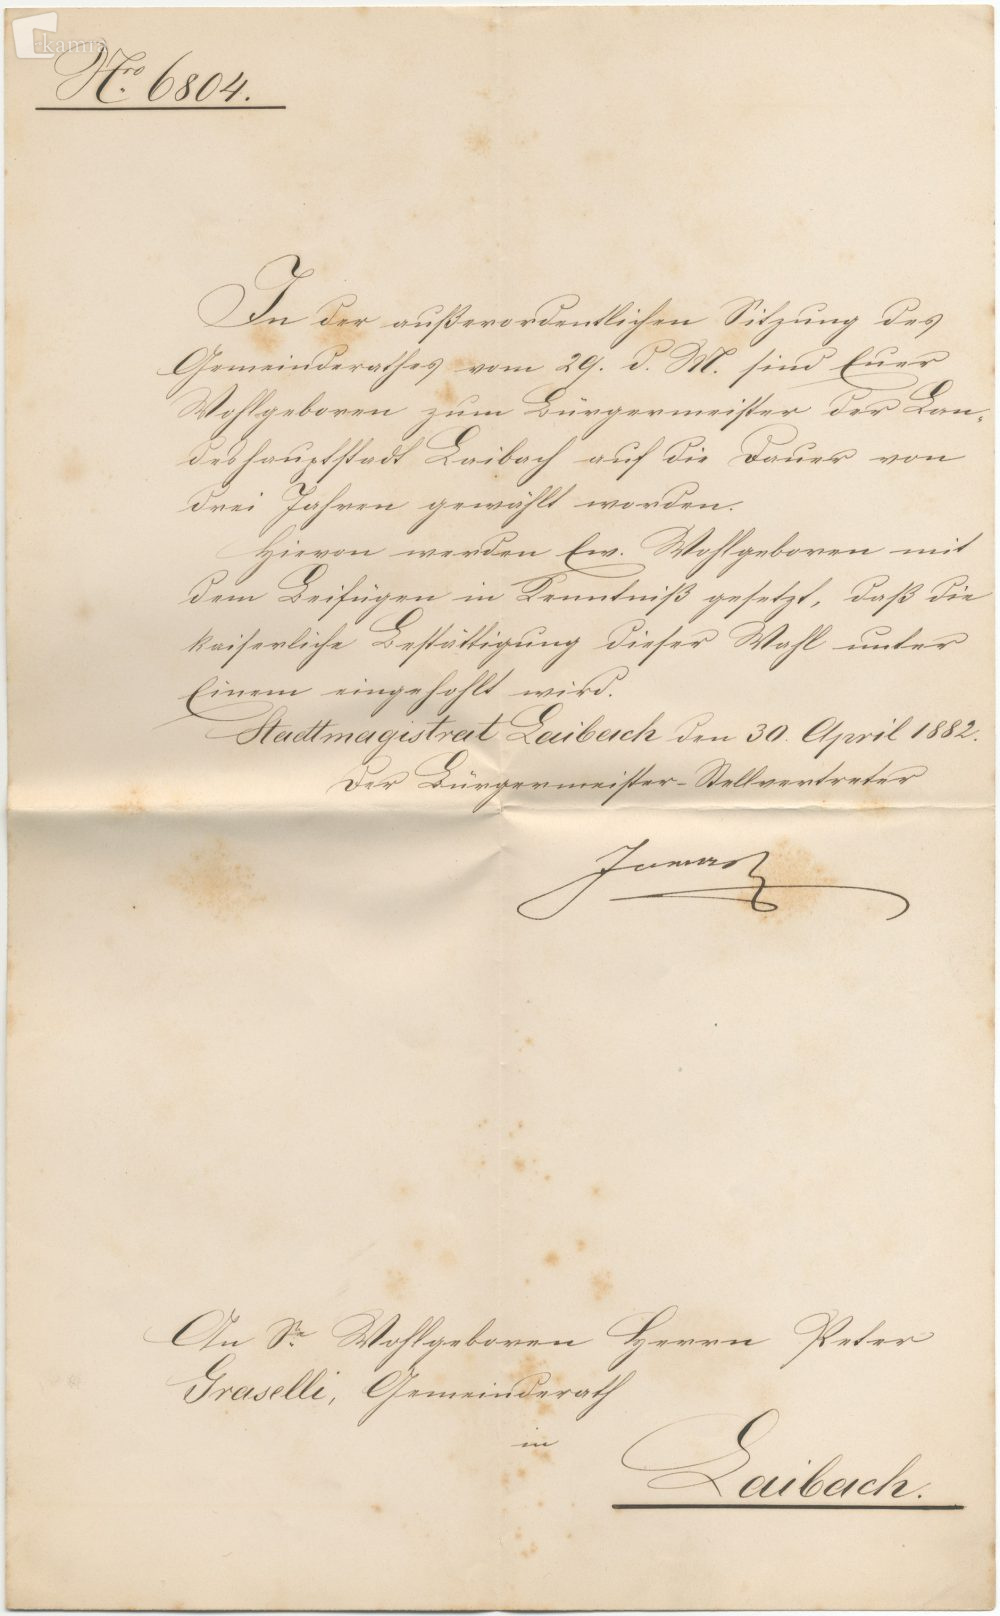 kamra
Nro. 6804.
In der außerordentlichen Sitzung des
Gemeinderathes vom 29. d. M. sind Euer
Wohlgeboren zum Bürgermeister der Lan-
deshauptstadt Laibach auf die Dauer von
drei Jahren gewählt worden.
Hievon werden Ew. Wohlgeboren mit
dem Beifügen in Kenntniß gesetzt, daß die
kaiserliche Bestättigung dieser Wahl unter
Einem eingehohlt wird.
Stadtmagistrat Laibach den 30. April 1882.
Der Bürgermeister-Stellvertreter
An Sr. Wohlgeboren Herrn Peter
Graselli, Gemeinderath
in
Laibach.